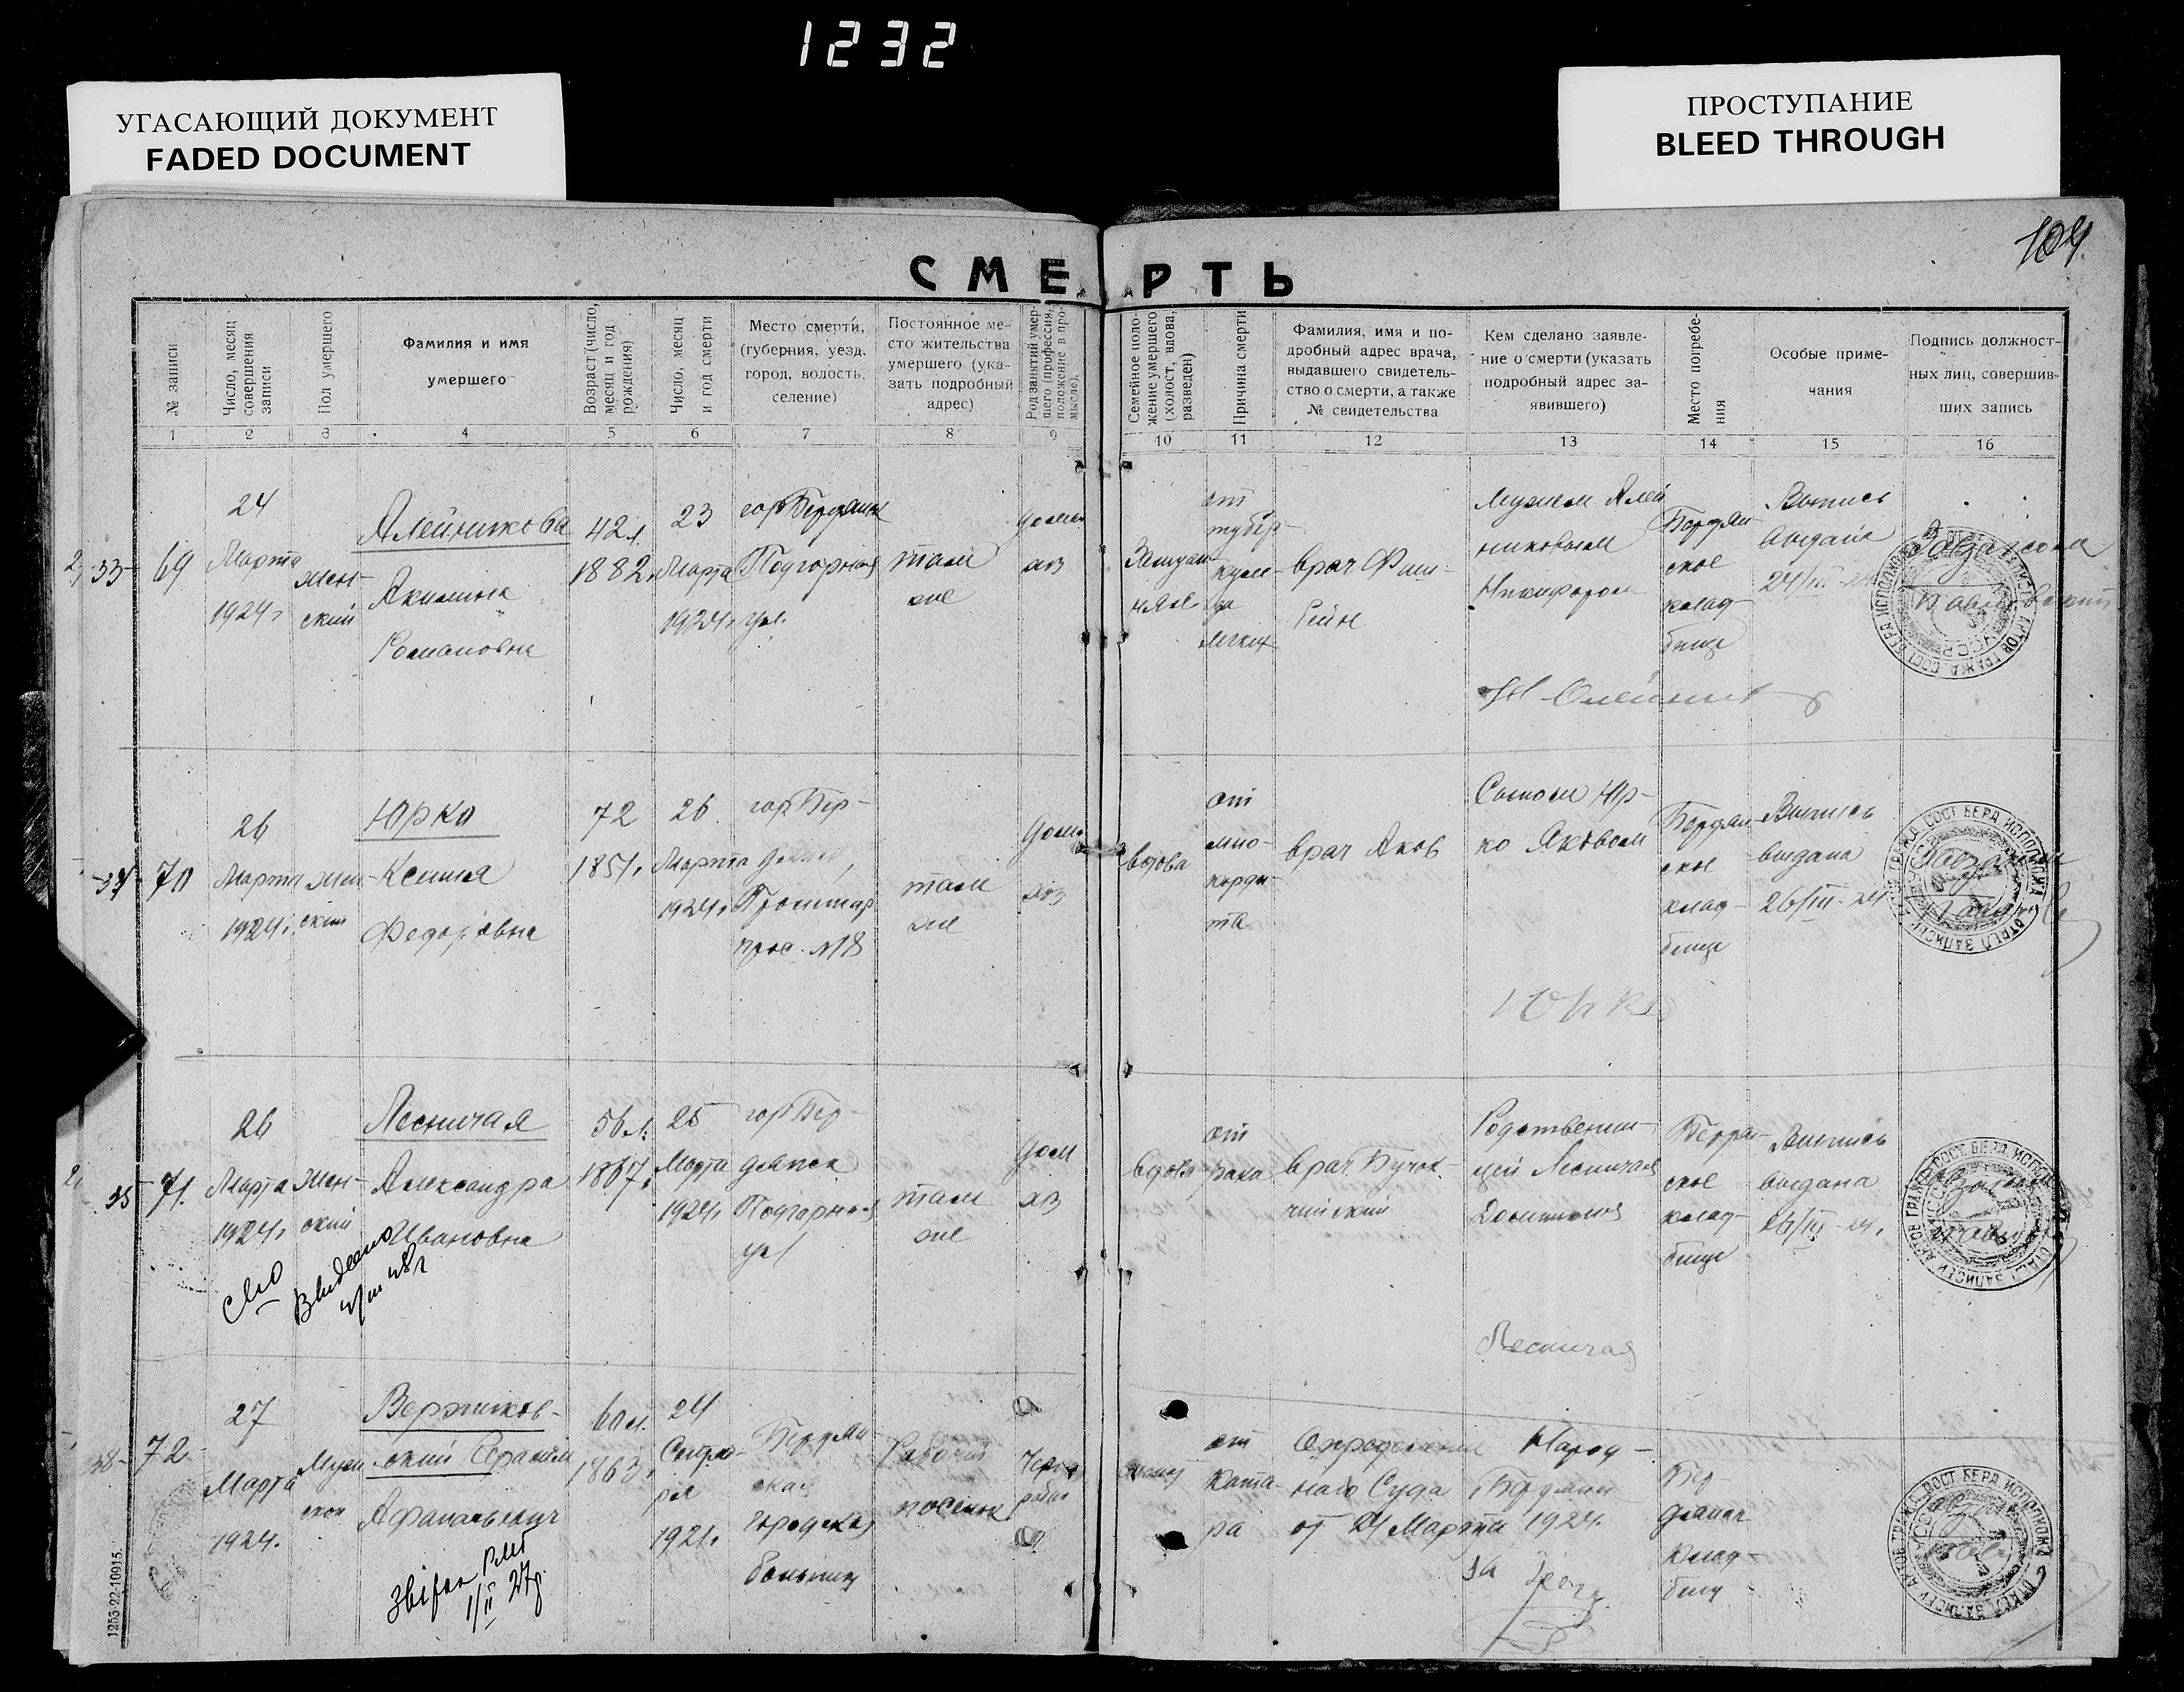 1232
УГАСАЮЩИЙ ДОКУМЕНТ
FADED DOCUMENT
ПРОСТУПАНИЕ
BLEED THROUGH
104
СМЕРТЬ
№ записи
Число, месяц совершения записи
Пол умершего
Фамилия и имя
умершего
Возраст (число, месяц и год рождения)
Число, месяц и год смерти
Место смерти,
(губерния, уезд,
город, волость,
селение)
Постоянное ме-
сто жительства
умершего (ука-
зать подробный
адрес)
Род занятий умер-
шего (профессия,
положение в про-
мысле).
Семейное поло-
жение умершего
(холост, вдова,
разведен)
Причина смерти
Фамилия, имя и по-
дробный адрес врача,
выдавшего свидетель-
ство о смерти, а также
№ свидетельства
Кем сделано заявле-
ние о смерти (указать
подробный адрес за-
явившего)
Место погребе-
ния
Особые приме-
чания
Подпись должност-
ных лиц, совершив-
ших запись
1 2 3 4 5 6 7 8 9 10 11 12 13 14 15 16
33 69
24
Марта
1924г
жен-
ский
Алейникова
Акилина
Романовна
42 л.
1882г
23
Марта
1924г
гор Бердянск
Подгорная
ул.
там
же
домаш
хоз
Замуж
няя
от
тубер-
куле-
за
легких
врач
Мужем Алей
никовым
Никифором
Бердян-
ское
клад-
бище
Выпись
выдана
24/III-24
34 70
26
Марта
1924г.
жен-
ский
Юрко
Ксения
Федоровна
72
1851г.
26
Марта
1924г
гор Бер-
дянск,
Пролетар
прос. №18
там
же
дом.
хоз
вдова
от
мио-
карди-
та
врач Яков
Сыном Юр-
ко Яковом
Бердян-
ское
клад-
бище
Выпись
выдана
26/III-24
Юрко
35 71.
26
Марта
1924г
жен-
ский
Лесничая
Александра
Ивановна
56 л.
1867г
25
Марта
1924г
гор Бер-
дянск
Подгорная
ул
там
же
дом
хоз
вдова
от
рака
врач
Родственни-
цей Лесничая
Бердян-
ское
клад-
бище
Выпись
выдана
26/III-24.
Лесничая
72
27
Марта
1924.
Мужской
Вержиков-
ский Серафим
Афанасьевич
60 л.
1863
24
1921г
Бердян-
ская
Городская
больниц
Рабочий
поселок
Черно
рабоч
от
Ката-
ра
Определение Народ-
наго Суда Бердянск
от 24 Марта 1924.
Бер-
дянск
Клад-
бищ
1253-22-10915